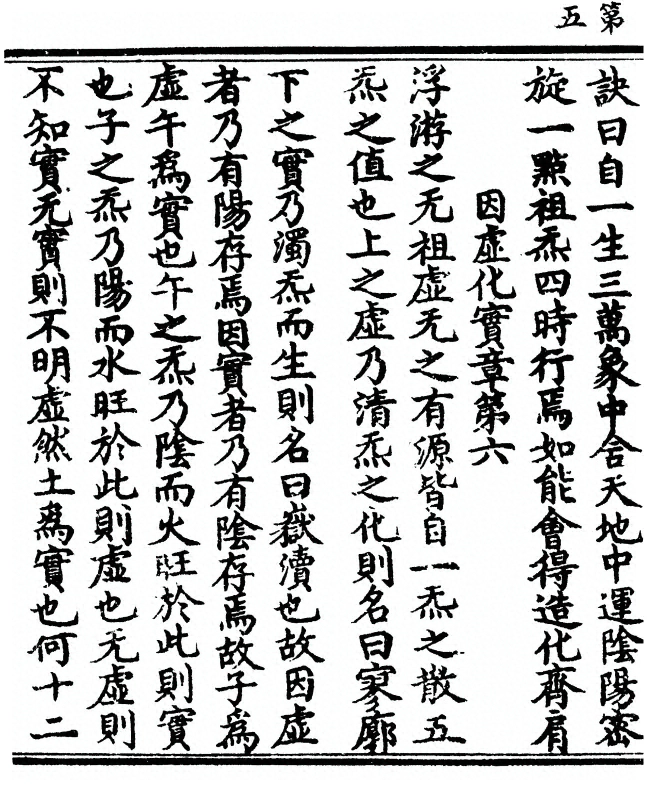 第
五
訣曰自一生三萬象中含天地中運陰陽密
旋一點祖炁四時行焉如能會得造化齊肩
因虛化實章第六
浮游之无祖虛无之有源皆自一炁之散五
炁之值也上之虛乃清炁之化則名曰寥廓
下之實乃濁炁而生則名曰嶽瀆也故因虛
者乃有陽存焉因實者乃有陰存焉故子為
虛午為實也午之炁乃陰而火旺於此則實
也子之炁乃陽而水旺於此則虛也无虛則
不知實无實則不明虛然土為實也何十二